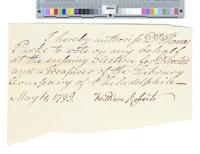 I hereby authorise Dr. Thomas
Parke to vote on my behalf
at the ensuing Election for Directors
and a Treasurer of the Library
Company of Philadelphia —
May 6, 1793.
William Roberts